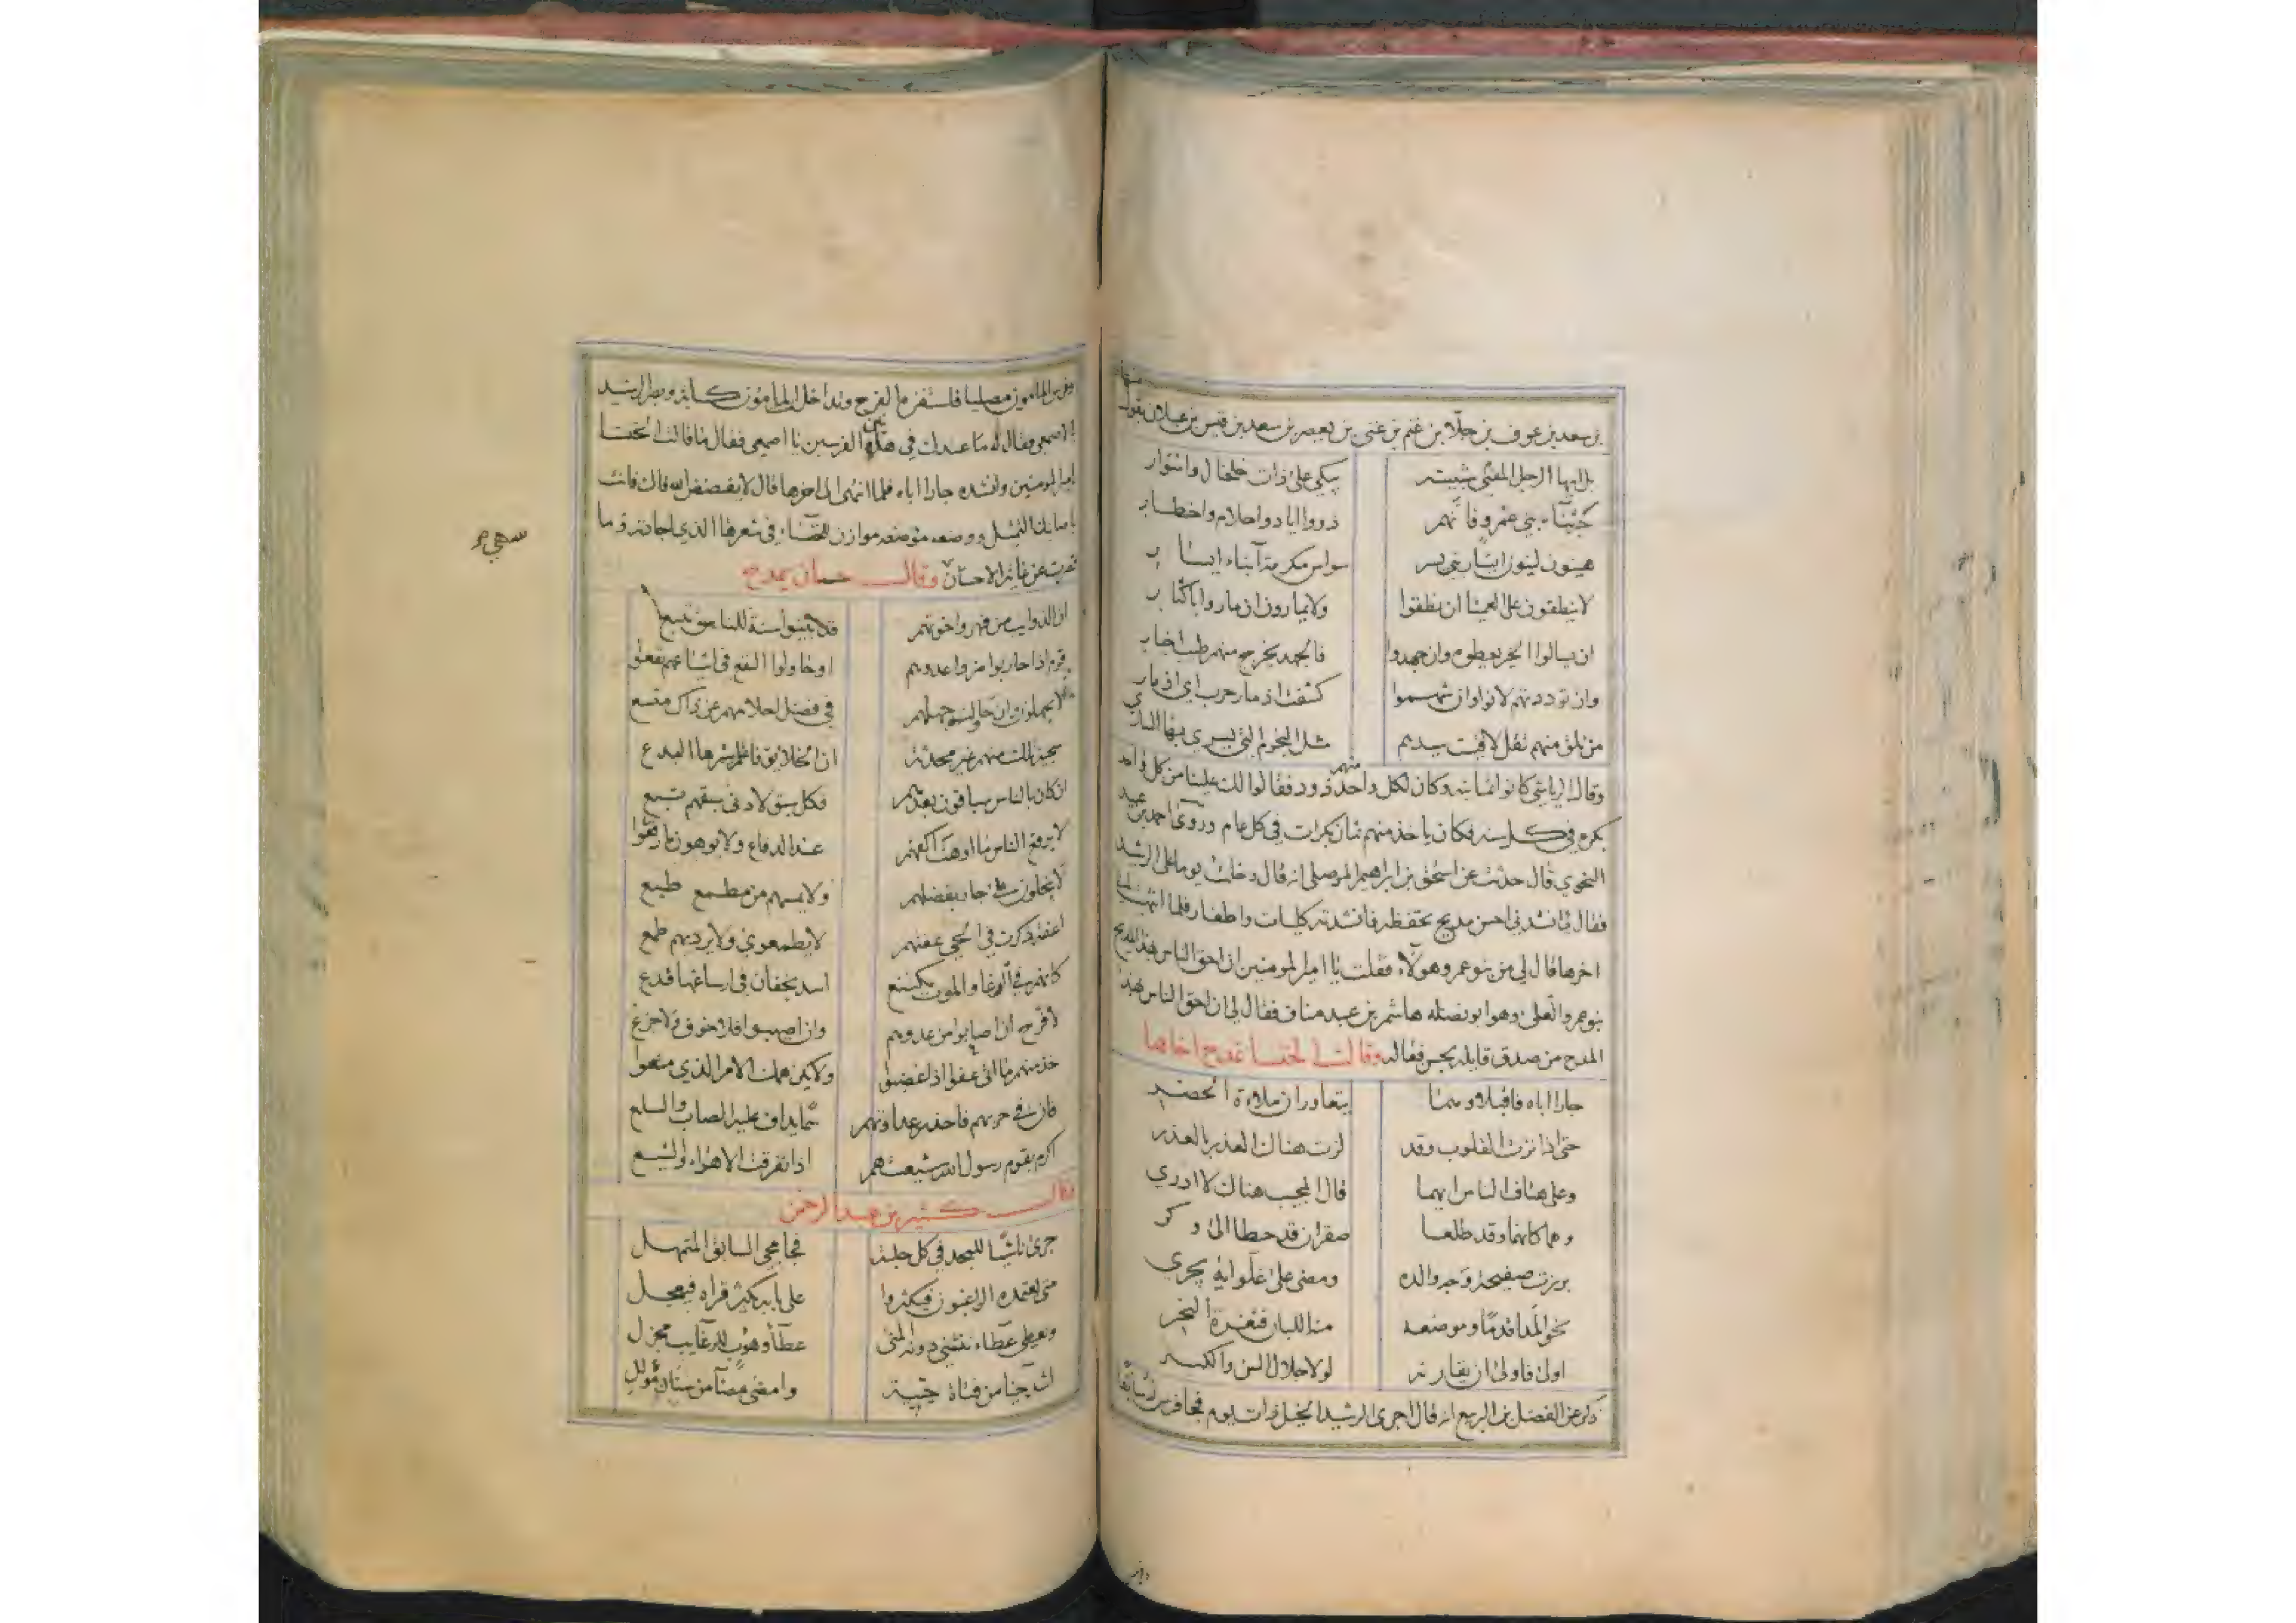 بن سعد بن عوف بن جلان بن غنم بن غنى بن يعصر بن سعد بن قيس بن عيلان يقول
منها
بل ايها الرجل المفنى شبيبته يبكي على ذات خلخال واسوار
خبر ثناء بني عمرو فانهم ذووا اياد واحلام واخطار
هينون لينون ايسار بني يسر سواس مكرمة ابناء ايسار
لا ينطقون على العميا ان نطقوا ولا يمارون ان ماروا باكثار
ان يسالوا الخير يعطوه وان جهدوا فالجهد يخرج منهم طيب اخبار
وان توددتهم لانوا وان شهموا كشفت اذمار حرب اي اذمار
من تلق منهم تقل لاقيت سيدهم مثل النجوم التي يسري بها الساري
وقال الرياشي كانوا ثمانية وكان لكل واحد منهم ذود فقالوا لك علينا من كل واحد
بكرة في كل سنة فكان ياخذ منهم ثمان بكرات في كل عام وروى احمد بن عبيد
النحوي قال حدثت عن اسحق بن ابرهيم الموصلي انه قال دخلت يوما على الرشيد
فقال لي انشدني احسن مديح تحفظه فانشدته كليات واطفار فلما انتهيت الى
اخرها قال لي من بنو عمرو هولاء فقلت يا امير المومنين ان احق الناس بهذا المديح
بنو عمرو العلى وهو ابو نضله هاشم بن عبد مناف فقال لي ان احق الناس بهذا
المدح من صدق قايله بحسن فعاله وقالت الخنسا تمدح اخاها
جارا اباه فاقبلا وهما يتعاوران ملاءة الحضر
حتى اذا نزت القلوب وقد لزت هناك العذر بالعذر
وعلى هتاف الناس ايهما قال المجيب هناك لا ادري
وهما كانهما وقد طلعا صقران قد حطا الى وكر
برزت صفيحة وجه والده ومضى على غلوايه يجري
نحو المدا قدما وموضعه منه اللبان فثغرة النحر
اولى فاولى ان يقاربه لولا جلال السن والكبر
ذكر عن الفضل بن الربيع انه قال اجرى الرشيد الخيل ذات يوم فجا فرس له سابقا
وفرس المامون مصليا فاستفزه الفرح وتداخل المامون كابة ونظر الرشيد
الاصمعي فقال له ما عندك في هذين الفرسين يا اصمعي فقال ما قالت الخنسا
امير المومنين وانشده جارا اباه فلما انتهى الى اخرها قال لا يفضض الله فاك فانت
اصابك التمثل ووضعه موضعه موازن للخنساء في شعرها الذي اجادته وما
قصرت عن غاية الاحسان وقال حسان يمدح
ان الذوايب من فهر واخوتهم قد بينوا سنة للناس تتبع
قوم اذا حاربوا ضروا عدوهم او حاولوا النفع في اشياعهم نفعوا
لا يجهلون وان حاولت جهلهم في فضل احلامهم عن ذاك متسع
سجية تلك منهم غير محدثة ان الخلايق فاعلم شرها البدع
ان كان بالناس سباقون بعدهم فكل سبق لادنى سبقهم تبع
لا يرفع الناس ما اوهت اكفهم عند الدفاع ولا يوهون ما رقعوا
لا يبخلون على جار بفضلهم ولا يمسهم من مطمع طبع
اعفة ذكرت في الحي عفتهم لا يطمعون ولا يرديهم طمع
كانهم في الوغا والموت مكتنع اسد بخفان في ارساغها فدع
لا فرح ان اصابوا من عدوهم وان اصيبوا فلا خوف ولا جزع
خذ منهم ما اتى عفوا اذا غضبوا ولا يكن همك الامر الذي منعوا
فان في حربهم فاحذر عداوتهم سما يداف عليه الصاب والسلع
اكرم بقوم رسول الله شيعتهم اذا تفرقت الاهواء والشيع
وقال كثير بن عبد الرحمن
جرى ناشيا للمجد في كل حلبة فجا مجي السابق المتمهل
متى يعتمده الراغبون فيكثروا على بابه يكثر قراه فيعجل
ويعطي عطاء تنتني دونه المنى عطا وهوب للرغايب مجزل
اشد حيا من فتاة حيية وامضى مضا من سنان مولل